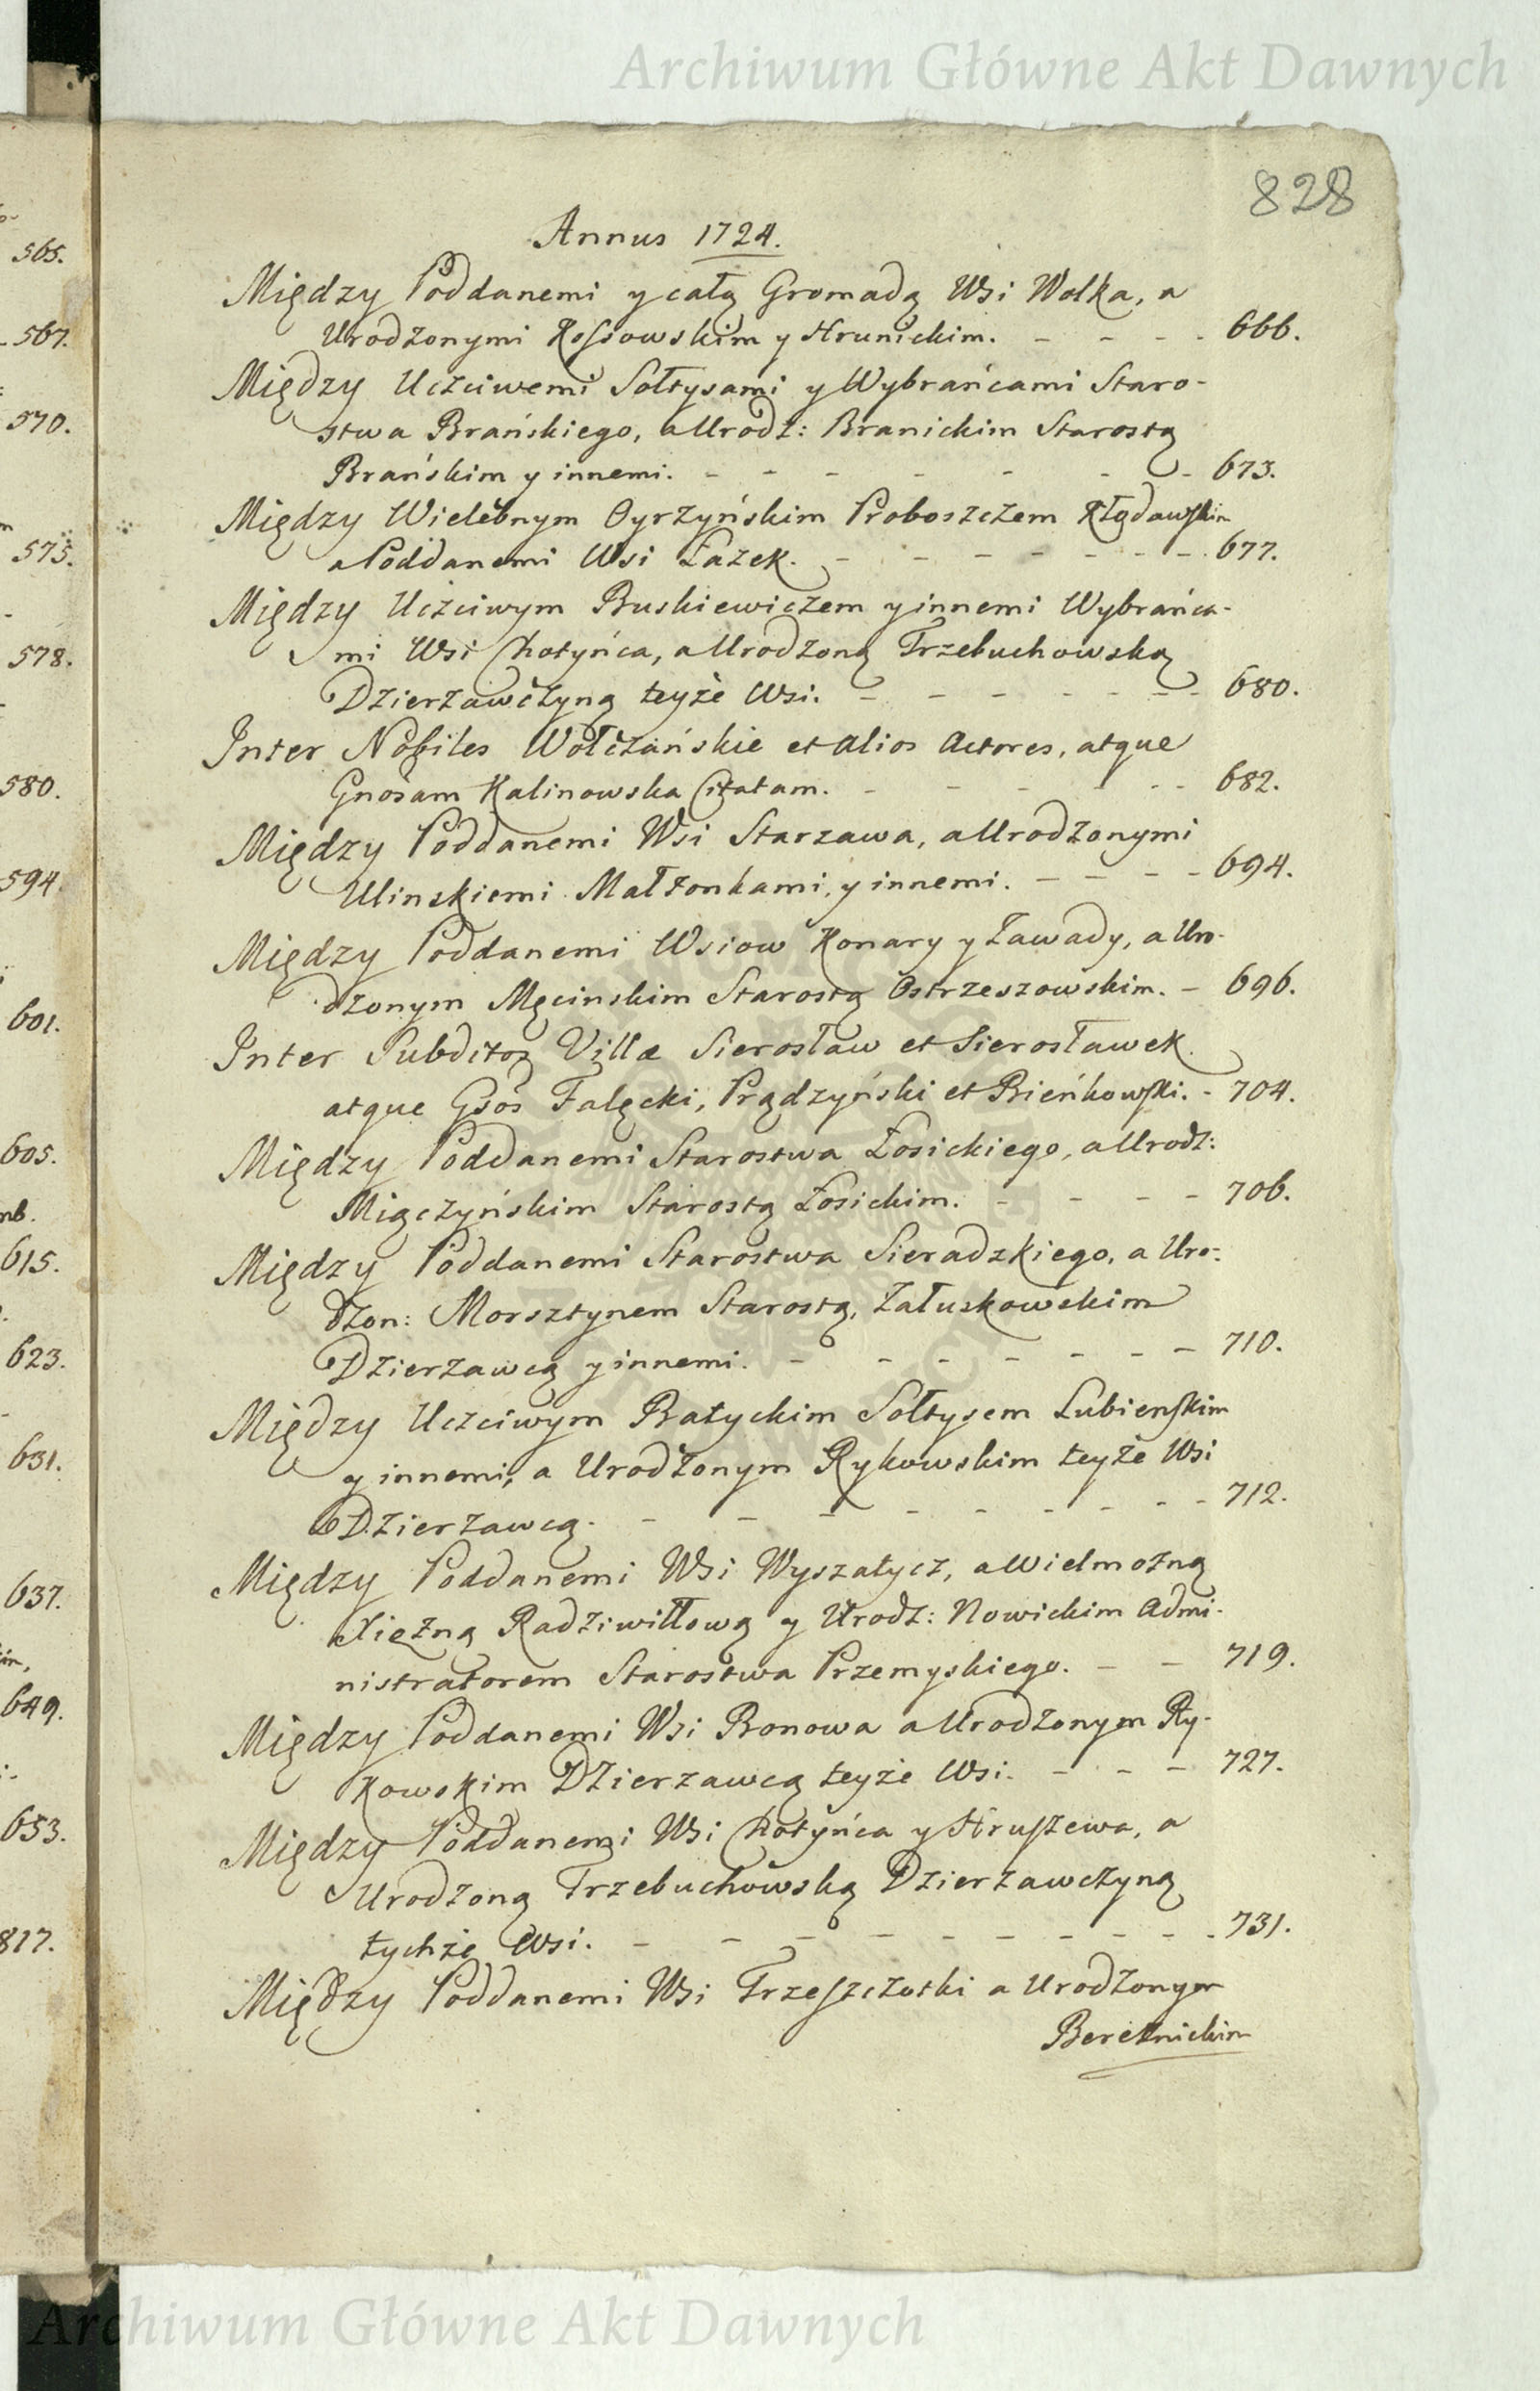 Archiwum Główne Akt Dawnych
828
Annus 1724.
Między Poddanemi y całą Gromadą Wsi Wolka, a
Urodzonymi Kossowskim y Hrunickim. - - - - 666.
Między Uczciwemi Sołtysami y Wybrańcami Staro-
stwa Brańskiego, a Urodz: Branickim Starostą
Brańskim y innemi. - - - - - - - 673.
Między Wielebnym Oyrzyńskim Proboszczem Kłodawskim
a Poddanemi Wsi Łazek. - - - - - - - 677.
Między Uczciwym Buskiewiczem y innemi Wybrańca-
mi Wsi Chotyńca, a Urodzoną Trzebuchowską
Dzierzawczyną teyże Wsi. - - - - - - - 680.
Inter Nobiles Wołczańskie et alios Actores, atque
Gnosam Kalinowska Citatam. - - - - - - 682.
Między Poddanemi Wsi Starzawa, a Urodzonymi
Ulinskiemi Małżonkami, y innemi. - - - - 694.
Między Poddanemi Wsiow Konary y Zawady, a Uro-
dzonym Męcinskim Starostą Ostrzeszowskim. - 696.
Inter Subditos Villæ Sierosław et Sierosławek
atque Gsos Falęcki, Prądzyński et Bieńkowski. - 704.
Między Poddanemi Starostwa Łosickiego, a Urodz:
Miączyńskim Starostą Łosickim. - - - - 706.
Między Poddanemi Starostwa Sieradzkiego, a Uro-
dzon: Morsztynem Starostą, Załuskowskim
Dzierzawcą y innemi. - - - - - - - 710.
Między Uczciwym Batyckim Sołtysem Lubienskim
y innemi, a Urodzonym Rykowskim teyże Wsi
Dzierzawcą. - - - - - - - - - 712.
Między Poddanemi Wsi Wyszatycz, a Wielmożną
Xiężną Radziwiłłową y Urodz: Nowickim Admi-
nistratorem Starostwa Przemyskiego. - - 719.
Między Poddanemi Wsi Bonowa a Urodzonym Ry-
kowskim Dzierzawcą teyże Wsi. - - - 727.
Między Poddanemi Wsi Chotyńca y Hruszewa, a
Urodzoną Trzebuchowską Dzierzawczyną
tychże Wsi. - - - - - - - - - - 731.
Między Poddanemi Wsi Trzeszczotki a Urodzonym
Bereznickim
565.
567.
570.
575.
578.
580.
594.
601.
605.
615.
623.
631.
637.
649.
653.
817.
Archiwum Główne Akt Dawnych